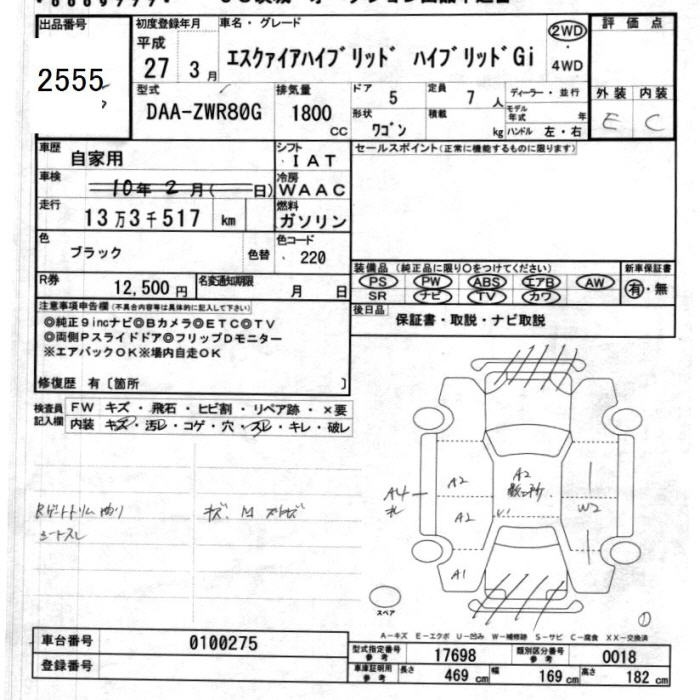 出品番号
2555
初度登録年月
平成
27 3 月
車名・グレード
エスクァイアハイブリッド ハイブリッドGi
2WD
4WD
評価点
外装 内装
E C
型式
DAA-ZWR80G
排気量
1800
CC
ドア
5
定員
7 人
ディーラー・並行
形状
ワゴン
積載
kg
モデル年式 年
ハンドル 左・右
車歴
自家用
シフト
IAT
車検
10年 2月( 日)
冷房
WAAC
走行
13万3千517 km
燃料
ガソリン
色
ブラック
色替
色コード
220
R券
12,500円
名変通知期限
月 日
セールスポイント(正常に機能するものに限ります)
装備品 (純正品に限り○をつけてください)
PS PW ABS エアB AW
SR ナビ TV カワ
新車保証書
有・無
後日品
保証書・取説・ナビ取説
注意事項申告欄(不具合内容等は具体的に記入して下さい)
◎純正9incナビ◎Bカメラ◎ETC◎TV
◎両側Pスライドドア◎フリップDモニター
※エアバックOK※場内自走OK
修復歴 有〔箇所 〕
検査員記入欄
FW キズ・飛石・ヒビ割・リペア跡・×要
内装 キズ・汚レ・コゲ・穴・スレ・キレ・破レ
シートスレ
キズ、M
A4
A2
A2
A2
A1
W2
スペア
①
A-キズ E-エクボ U-凹み W-補修跡 S-サビ C-腐食 XX-交換済
車台番号
0100275
登録番号
型式指定番号 参考
17698
類別区分番号 参考
0018
車庫証明用 参考
長さ 469 cm 幅 169 cm 高さ 182 cm